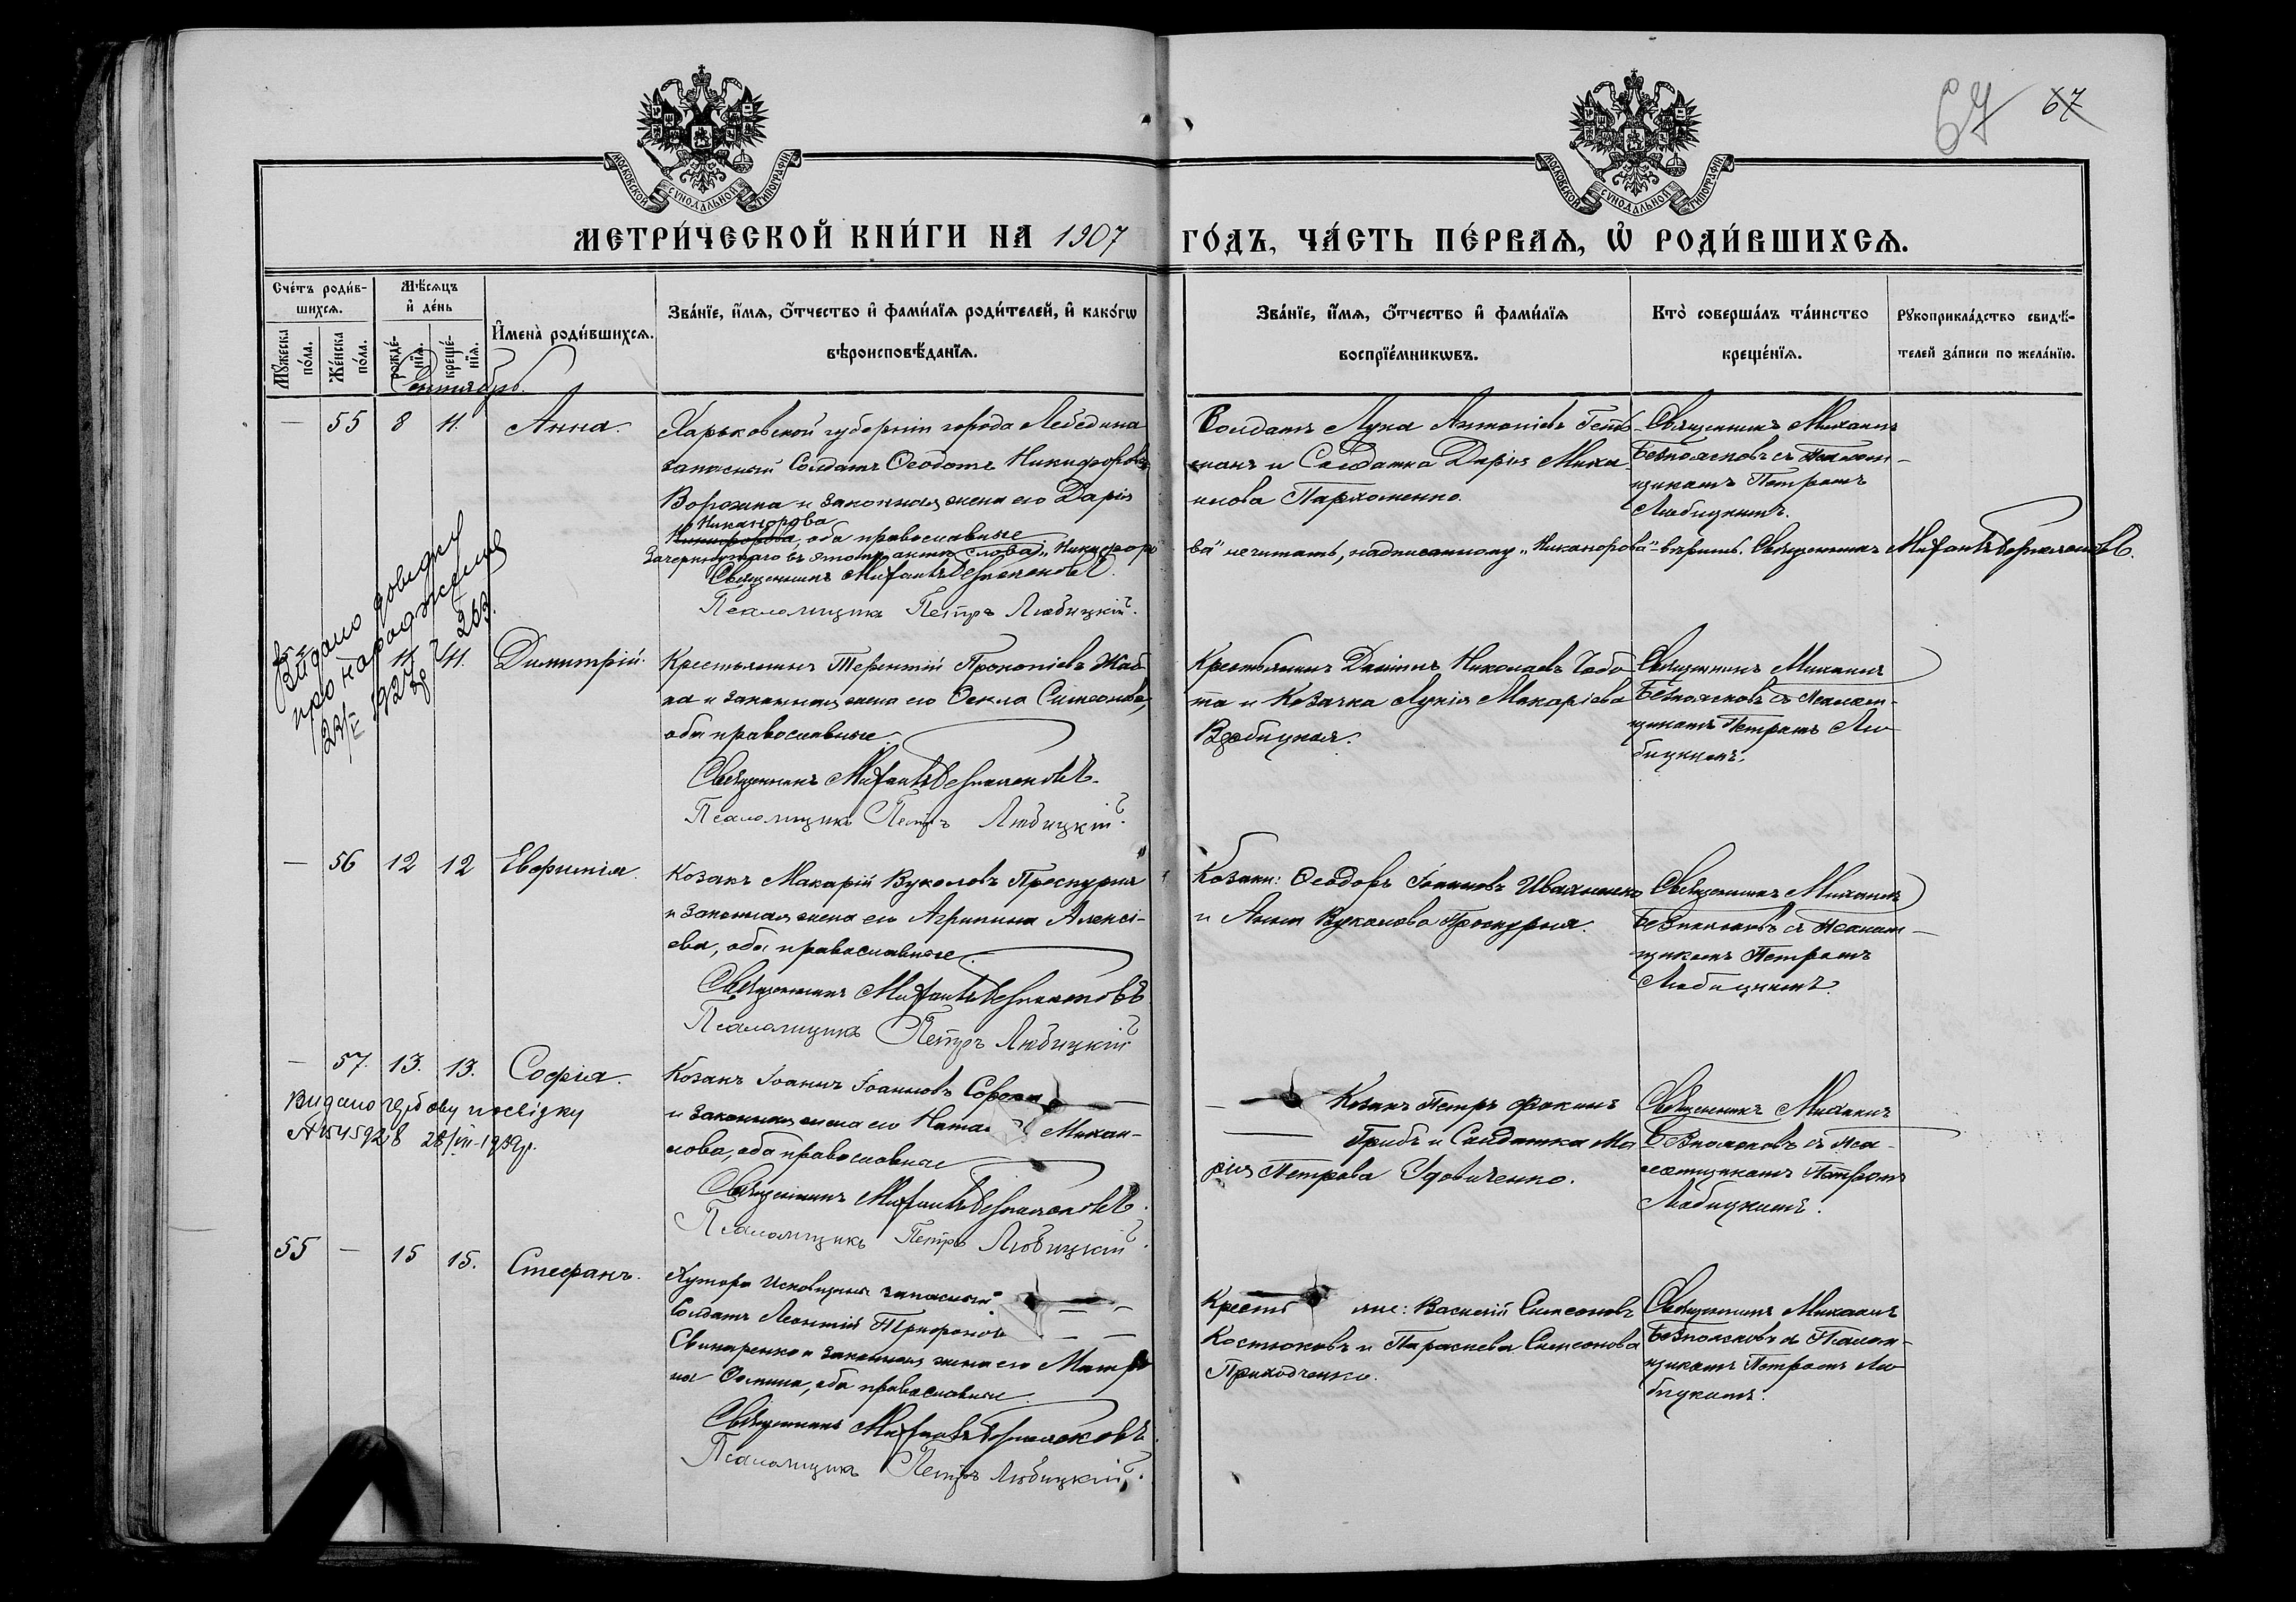 67 67
МОСКОВСКОЙ СУНОДАЛЬНОЙ ТИПОГРАФІИ
МОСКОВСКОЙ СУНОДАЛЬНОЙ ТИПОГРАФІИ
МЕТРИ́ЧЕСКОЙ КНИ́ГИ НА 1907 ГО́ДЪ, ЧА́СТЬ ПЕ́РВАѦ, Ѡ҆ РОДИ́ВШИХСѦ.
Сче́тъ роди́в-
шихсѧ.
Мꙋ́жеска по́ла.
Же́нска по́ла.
Мѣ́сѧцъ
и҆ де́нь
рожде́-
нїѧ.
креще́-
нїѧ.
И҆мена̀ роди́вшихсѧ.
Зва́нїе, и҆́мѧ, ѻ҆́тчество и҆ фами́лїѧ роди́телей, и҆ како́гѡ
вѣроисповѣ́данїѧ.
Зва́нїе, и҆́мѧ, ѻ҆́тчество и҆ фами́лїѧ
воспрїе́мникѡвъ.
Кто̀ соверша́лъ та́инство
креще́нїѧ.
Рꙋкоприкла́дство свидѣ́-
телей за́писи по жела́нїю.
Сентябрь.
— 55 8 11. Анна.
Харьковской губерніи города Лебедина
запасный Солдатъ Ѳеодотъ Никифоровъ
Ворожка и законная жена его Дарія
Никанорова
Никифорова, оба православные
Зачеркнутаго въ этомъ актѣ слова „Никифоро
ва" не читать, надписанному „Никанорова" вѣрить. Священникъ Михаилъ Безпалековъ.
Священникъ Михаилъ Безпалековъ.
Псаломщикъ Петръ Любицкій.
Солдатъ Лука Антоніевъ Геть-
манъ и Солдатка Дарія Михаи-
лова Пархоменко.
Священникъ Михаилъ
Безпалековъ съ Псалом-
щикомъ Петромъ
Любицкимъ.
Видано довидку
про народження
23/V 1927 263
11 11. Димитрій.
Крестьянинъ Терентій Прокопіевъ Жаб-
ка и законная жена его Ѳекла Симеонова,
оба православные.
Священникъ Михаилъ Безпалековъ.
Псаломщикъ Петръ Любицкій.
Крестьянинъ Даніилъ Николаевъ Чобо-
та и Козачка Лукія Макаріева
Вдобицкая.
Священникъ Михаилъ
Безпалековъ съ Псалом-
щикомъ Петромъ Лю-
бицкимъ.
— 56 12 12 Евфимія.
Козакъ Макарій Вуколовъ Проскурня
и законная жена его Агрипина Алексі-
ева, оба православные
Священникъ Михаилъ Безпалековъ
Псаломщикъ Петръ Любицкій
Козаки: Ѳеодоръ Іоанновъ Ивахненко
и Анна Вуколова Проскурня.
Священникъ Михаилъ
Безпалековъ съ Псалом-
щикомъ Петромъ
Любицкимъ.
— 57. 13. 13. Софія.
Видано посвідку
28/VII-1939р.
Козакъ Іоаннъ Іоанновъ Сорока —
и законная жена его Ната Михаи-
лова, оба православные
Священникъ Михаилъ Безпалековъ.
Псаломщикъ Петръ Любицкій.
— Козакъ Петръ Фокинъ
— Грибъ и Солдатка Ма
рія Петрова Удовиченко.
Священникъ Михаилъ
Безпалековъ съ Пса-
ломщикомъ Петромъ
Любицкимъ.
55 — 15 15. Стефанъ.
Хутора запасный —
Солдатъ Леонтій Трифоновъ — —
Свинаренко и законная жена его Матро
на Ѳомина, оба православные
Священникъ Михаилъ Безпалековъ.
Псаломщикъ Петръ Любицкій.
Кресть яне: Василій Симеоновъ
Костюковъ и Параскева Симеонова
Приходченко.
Священникъ Михаилъ
Безпалековъ съ Псалом-
щикомъ Петромъ Лю-
бицкимъ.